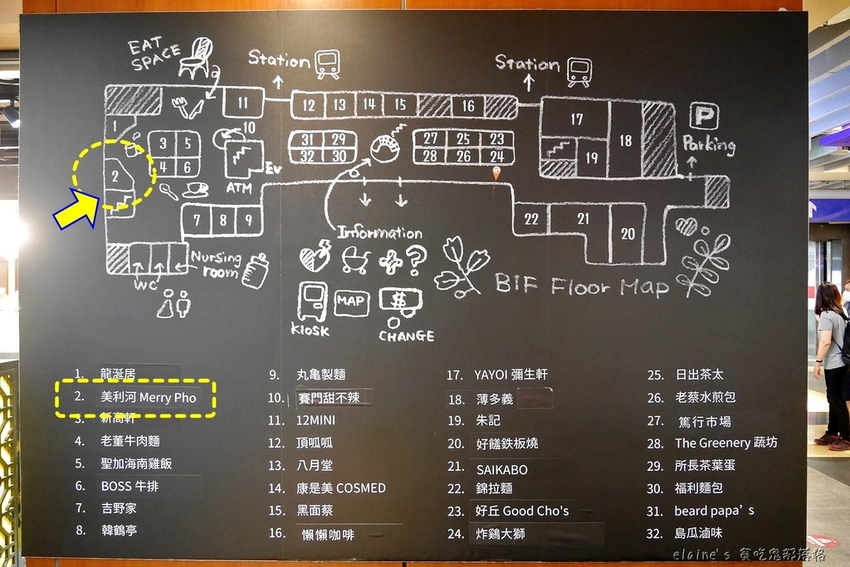 EAT
SPACE
Station
Station
11
12 13 14 15 16
17
18
19
P
Parking
1
2
3 5
4 6
10
Ev
ATM
31 29
32 30
27 25 23
28 26 24
7 8 9
22 21 20
Information
Nursing
room
WC
KIOSK
MAP
$
CHANGE
?
B1F Floor Map
1. 龍涎居
2. 美利河 Merry Pho
3. 新高軒
4. 老董牛肉麵
5. 聖加海南雞飯
6. BOSS 牛排
7. 吉野家
8. 韓鶴亭
9. 丸亀製麵
10. 賽門甜不辣
11. 12MINI
12. 頂呱呱
13. 八月堂
14. 康是美 COSMED
15. 黑面蔡
16. 懶懶咖啡
17. YAYOI 彌生軒
18. 薄多義
19. 朱記
20. 好饍鉄板燒
21. SAIKABO
22. 錦拉麵
23. 好丘 Good Cho's
24. 炸鷄大獅
25. 日出茶太
26. 老蔡水煎包
27. 篤行市場
28. The Greenery 蔬坊
29. 所長茶葉蛋
30. 福利麵包
31. beard papa's
32. 島瓜滷味
elaine's 貪吃鬼部落格